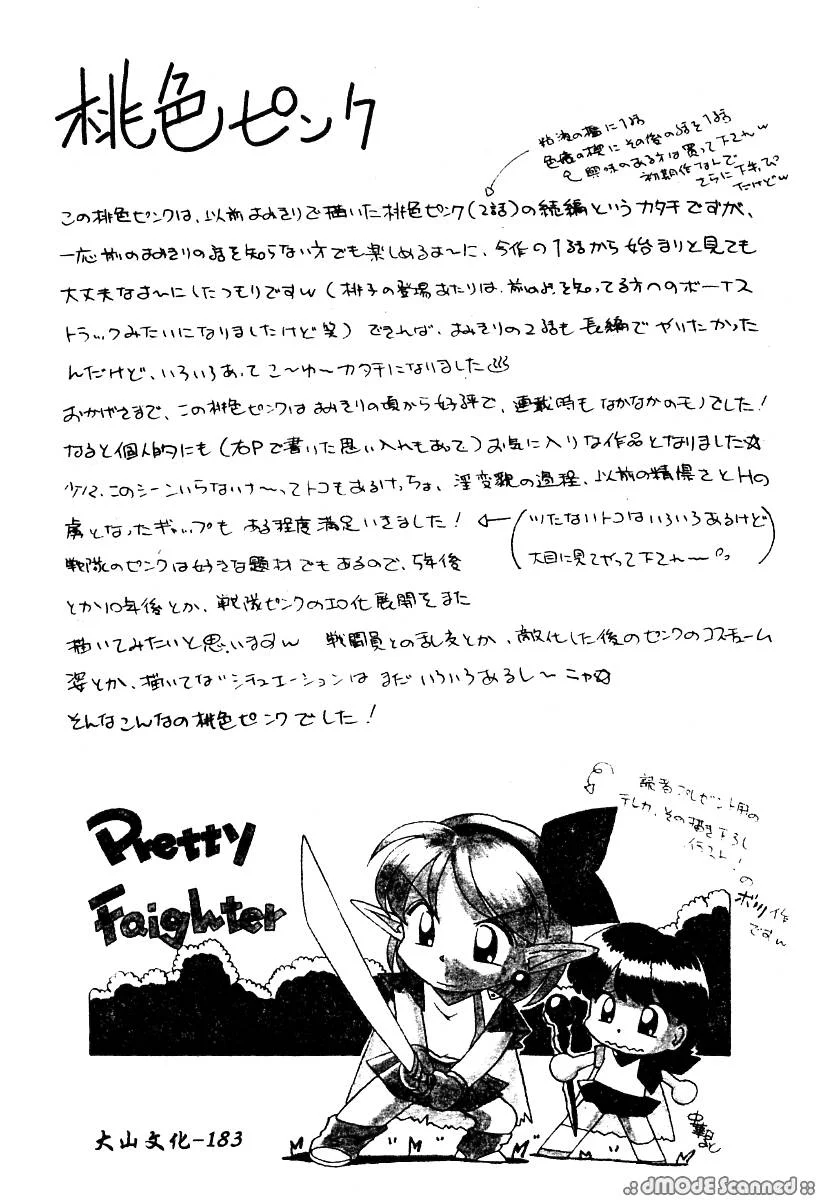 桃色ピンク
粘液の檻に1話
色魔の楔にその後の話を1話
興味のある方は買って下されw
初期作なんで
さらに下手っぴ
だけどw
この桃色ピンクは、以前よみきりで描いた桃色ピンク(2話)の続編というカタチですが、
一応前のよみきりの話を知らない方でも楽しめるよーに、今作の1話から始まりと見ても
大丈夫なよーにしたつもりですw(桃子の登場あたりは、前のを知ってる方へのボーナス
トラックみたいになりましたけど笑)できれば、よみきりの2話も長編でやりたかった
んだけど、いろいろあってこーゆーカタチになりました
おかげさまで、この桃色ピンクはよみきりの頃から好評で、連載時もなかなかのモノでした!
なると個人的にも(右Pで書いた思い入れもあって)お気に入りな作品となりました☆
少々、このシーンいらないなーってトコもあるけっちょ、淫変貌の過程、以前の精悍さとHの
虜となったギャップもある程度満足いきました!
(ツたないトコはいろいろあるけど
大目に見てやって下されー)
戦隊のピンクは好きな題材でもあるので、5年後
とか10年後とか、戦隊ピンクのエロ化展開をまた
描いてみたいと思いますw 戦闘員との乱交とか、敵化した後のピンクのコスチューム
姿とか、描いてないシチュエーションはまだいろいろあるしーニャ☆
そんなこんなの桃色ピンクでした!
読者プレゼント用の
テレカ、その描き下ろし
イラスト!
の
ボツ作
ですw
Pretty
Faighter
大山文化-183
.:: dMODE Scanned ::